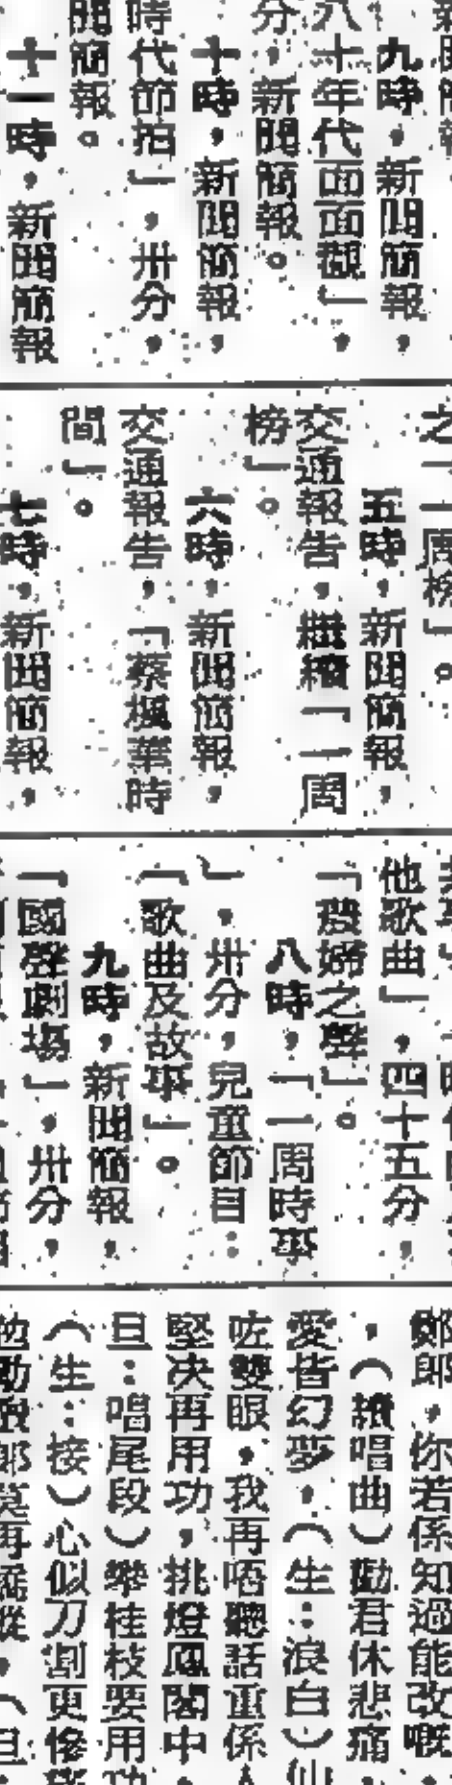 九時，新聞簡報，
八十年代面面觀」，
分，新聞簡報。
十時，新聞簡報，
時代節拍」，卅分，
聞簡報。
十一時，新聞簡報
之「一周榜」。
五時，新聞簡報，
交通報告，繼續「一周
榜」。
六時，新聞簡報，
交通報告，「蔡楓華時
間」。
七時，新聞簡報，
他歌曲」，四十五分，
「農婦之聲」。
八時，「一周時事
」，卅分，兒童節目：
「歌曲及故事」。
九時，新聞簡報，
「國聲劇場」，卅分，
鄭郎，你若係知過能改嘅
，（續唱曲）勸君休悲痛
愛皆幻夢，（生：浪白）仙
咗雙眼，我再唔聽話重係
堅决再用功，挑燈風閣中，
旦：唱尾段）攀桂枝要用功
（生：接）心似刀割更慘